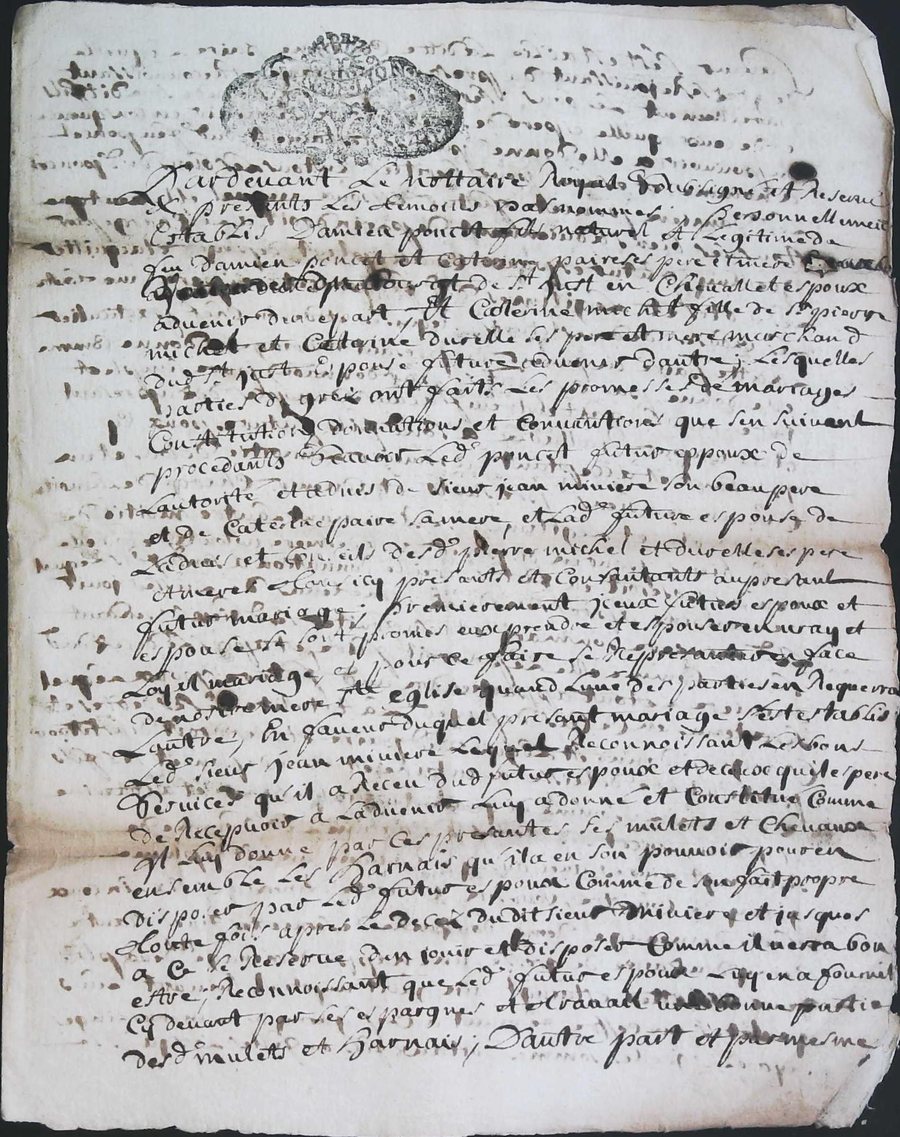 Pardevant Le nottaire Royal soubsigné et Reservé
Et presents Les temoins bas nommes, personnellement
Establis Damien poncet fils naturel et Legitime de
feu Damien poncet et Caterine paire ses pere et mere
de St just en Chevallet espoux
advenir d'une part Et Caterine michel fille de Sr pierre
michel et Catterine ducelle ses pere et mere marchand
dud St just espouse future advenir d'autre, Lesquelles
parties de gré ont faits Les promesses de mariages
Constitutions donnations et Conventions que sen suivent
procedants scavoir Led poncet futur espoux de
Lautorité et advis de sieur jean miniere son beau pere
et de Caterine paire sa mere, et Lad future espouse de
Ladvis et Conseils desd pierre michel et ducelle ses pere
et meres tous icy presants et Consentants au present
futur mariage; premierement yceux futurs espoux et
espouse se sont promis eux prendre et espouser en vray et
Loyal mariage et pour ce faire se Representer en face
de nostre mere Ste eglise quand Lune des parties en Requerra
Lautre, En faveur duquel present mariage s'est establis
Led sieur jean miniere Lequel Reconnoissant Les bons
services qu'il a Receu dud futur espoux et de ceux qu'il espere
de Recepvoir à Ladvenir Luy a donné et Constitue Comme
Il Luy donne par ces presantes ses mulets et Chevaux
ensemble Les Harnais qu'il a en son pouvoir pour en
disposer par Led futur espoux Comme de son fait propre
toute fois apres Le decez dudit sieur miniere et jusques
a Ce se Reserve den jouir et disposer Comme il verra bon
estre, Reconnoissant que Led futur espoux Luy en a fournit
Cy devant par ses espargnes et travail une bonne partie
desd mulets et Harnais, D'autre part et par mesme